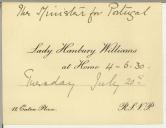 The Minister for Portugal
Lady Hanbury Williams
at Home 4-6.30
Tuesday July 21st
12 Eaton Place.
R.S.V.P